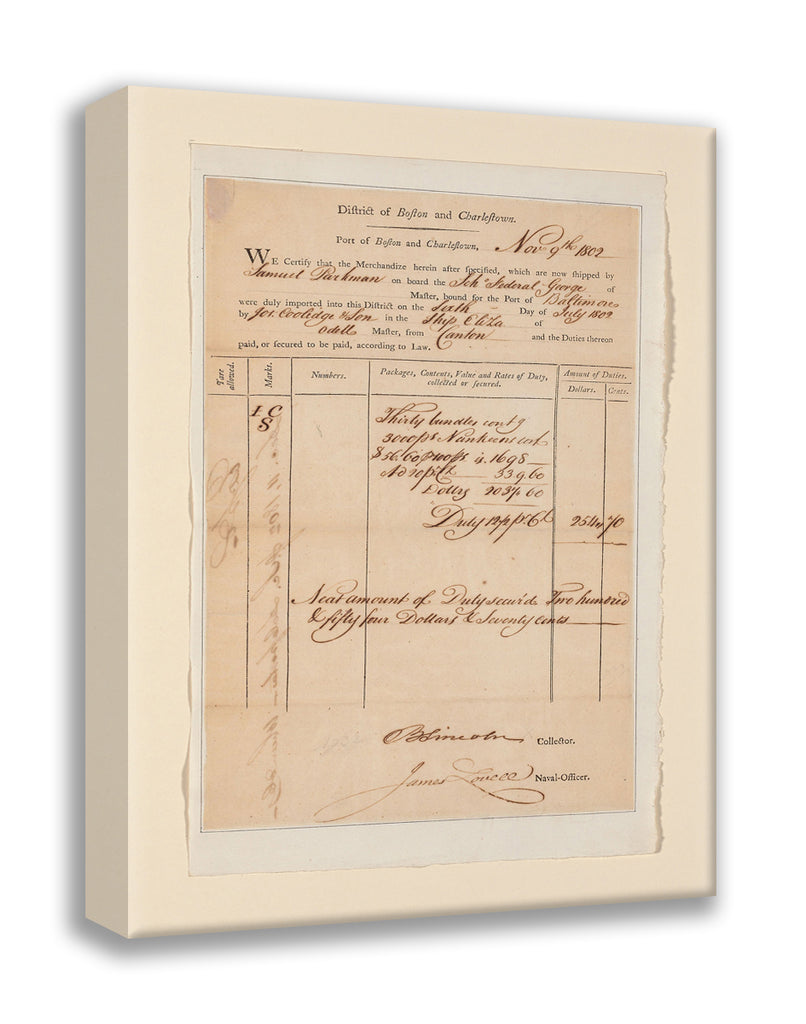 Diſtrict of Boſton and Charleſtown.
Port of Boſton and Charleſtown, Nov 9th 1802
WE Certify that the Merchandize herein after ſpecified, which are now ſhipped by
Samuel Parkman on board the Schr Federal George of
Maſter, bound for the Port of Baltimore
were duly imported into this Diſtrict on the Sixth Day of July 1802
by Jos. Coolidge & Son in the Ship Eliza of
Odell Maſter, from Canton and the Duties thereon
paid, or ſecured to be paid, according to Law.
Tare allowed. Marks. Numbers. Packages, Contents, Value and Rates of Duty, collected or ſecured. Amount of Duties.
Dollars. Cents.
I C Thirty bundles contg
S 3000 ps Nankeens cost
$56.60 p 100 ps is 1698
Ad 20 p Ct 339.60
Dollars 2037.60
Duty 12½ p Ct 254 70
Neat amount of Duty secur'd Two hundred
& fifty four Dollars & Seventy Cents
B Lincoln Collector.
James Lovell Naval-Officer.